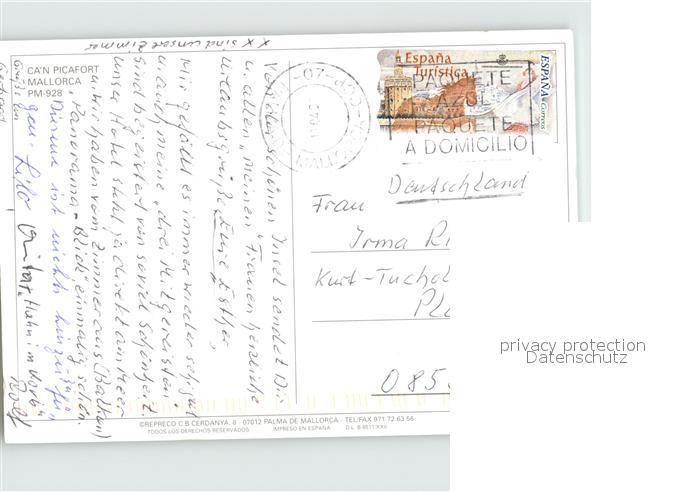 x x sind unsere Zimmer
CA'N PICAFORT
MALLORCA
PM-928
Von der schönen Insel sendet Dir
u. allen "meinen" Frauen herzliche
Urlaubsgrüße Eure Esther"
Mir gefällt es immer wieder sehr gut
u. auch meine "drei Mitgereisten"
sind begeistert von soviel Schönheit.
Unser Hotel steht ja direkt am Meer
u. wir haben vom Zimmer aus (Balkon)
Panorama-Blick, einmalig schön.
Diesem ist nichts hinzuzufü-
gen.
Grüße von
Gerhard
Rolf
España
Turística
ESPAÑA
Correos
PAQUETE
AZUL
PAQUETE
A DOMICILIO
MALLORCA
07
Deutschland
Frau
Irma Ri
Kurt-Tuchol
Pl
085
privacy protection
Datenschutz
©REPRECO C.B CERDANYA, 8 · 07012 PALMA DE MALLORCA - TEL/FAX 971 72 63 56
TODOS LOS DERECHOS RESERVADOS IMPRESO EN ESPAÑA